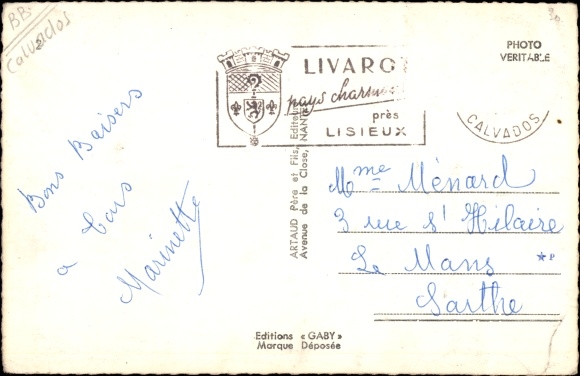 BB.
Calvados
LIVAROT
pays charmant
près
LISIEUX
CALVADOS
PHOTO
VERITABLE
Bons Baisers
a tous
Marinette
ARTAUD Père et Fils, Editeurs
Avenue de la Close, NANTES
Mme Ménard
3 rue St Hilaire
Le Mans
Sarthe
Editions « GABY »
Marque Déposée